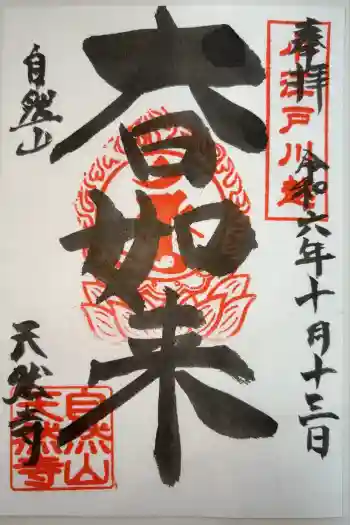 奉拝
令和六年十月十三日
小江戸川越
大日如来
自然山
天然寺
自然山
天然寺